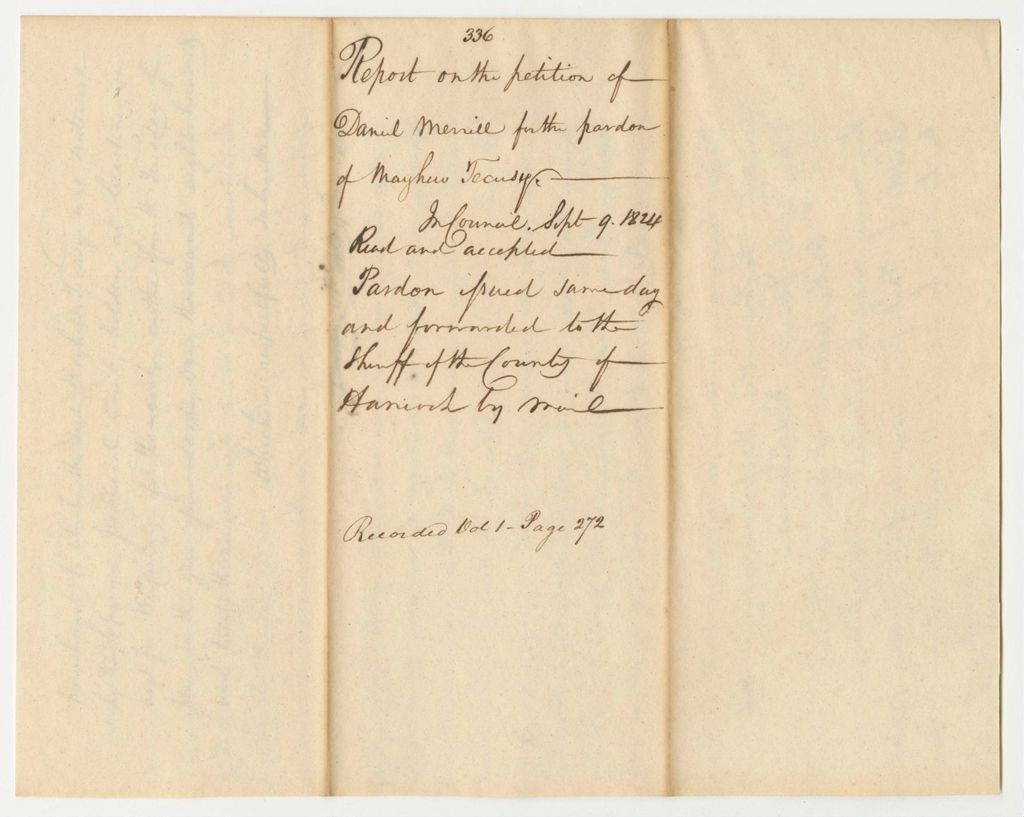 336
Report on the petition of
Daniel Merrill for the pardon
of Mayhew Tecusy.
In Council. Sept 9. 1824
Read and accepted
Pardon issued same day
and forwarded to the
Sheriff of the County of
Hancock by mail
Recorded Vol 1 - Page 272